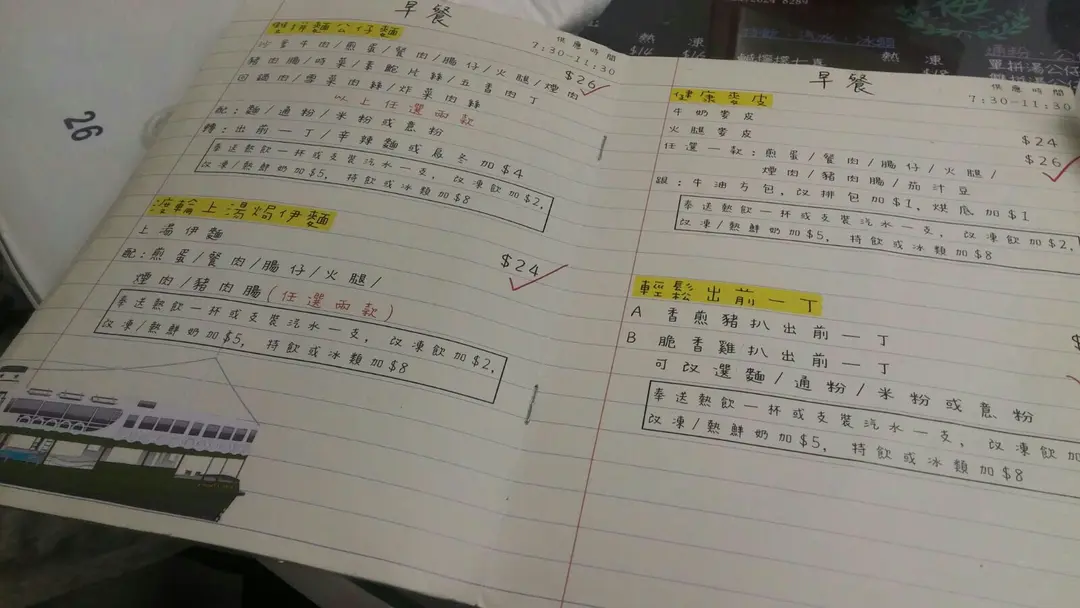 早餐
供應時間
7:30-11:30
雙拼麵公仔麵
沙爹牛肉/煎蛋/餐肉/腸仔/火腿/煙肉
$26
豬肉腸/時菜/素鮑片絲/五香肉丁
回鍋肉/雪菜肉絲/炸菜肉絲
以上任選兩款
配:麵/通粉/米粉或意粉
轉:出前一丁/辛辣麵或烏冬加$4
奉送熱飲一杯或支裝汽水一支,改凍飲加$2,
改凍/熱鮮奶加$5,特飲或冰類加$8
渡輪上湯焗伊麵
上湯伊麵
$24
配:煎蛋/餐肉/腸仔/火腿/
煙肉/豬肉腸(任選兩款)
奉送熱飲一杯或支裝汽水一支,改凍飲加$2,
改凍/熱鮮奶加$5,特飲或冰類加$8
早餐
供應時間
7:30-11:30
健康麥皮
牛奶麥皮
$24
火腿麥皮
$26
任選一款:煎蛋/餐肉/腸仔/火腿/
煙肉/豬肉腸/茄汁豆
跟:牛油方包,改排包加$1,烘底加$1
奉送熱飲一杯或支裝汽水一支,改凍飲加$2,
改凍/熱鮮奶加$5,特飲或冰類加$8
輕鬆出前一丁
A 香煎豬扒出前一丁
B 脆香雞扒出前一丁
可改選麵/通粉/米粉或意粉
奉送熱飲一杯或支裝汽水一支,改凍飲加
改凍/熱鮮奶加$5,特飲或冰類加$8
26
熱 凍
$14 $16
熱 凍